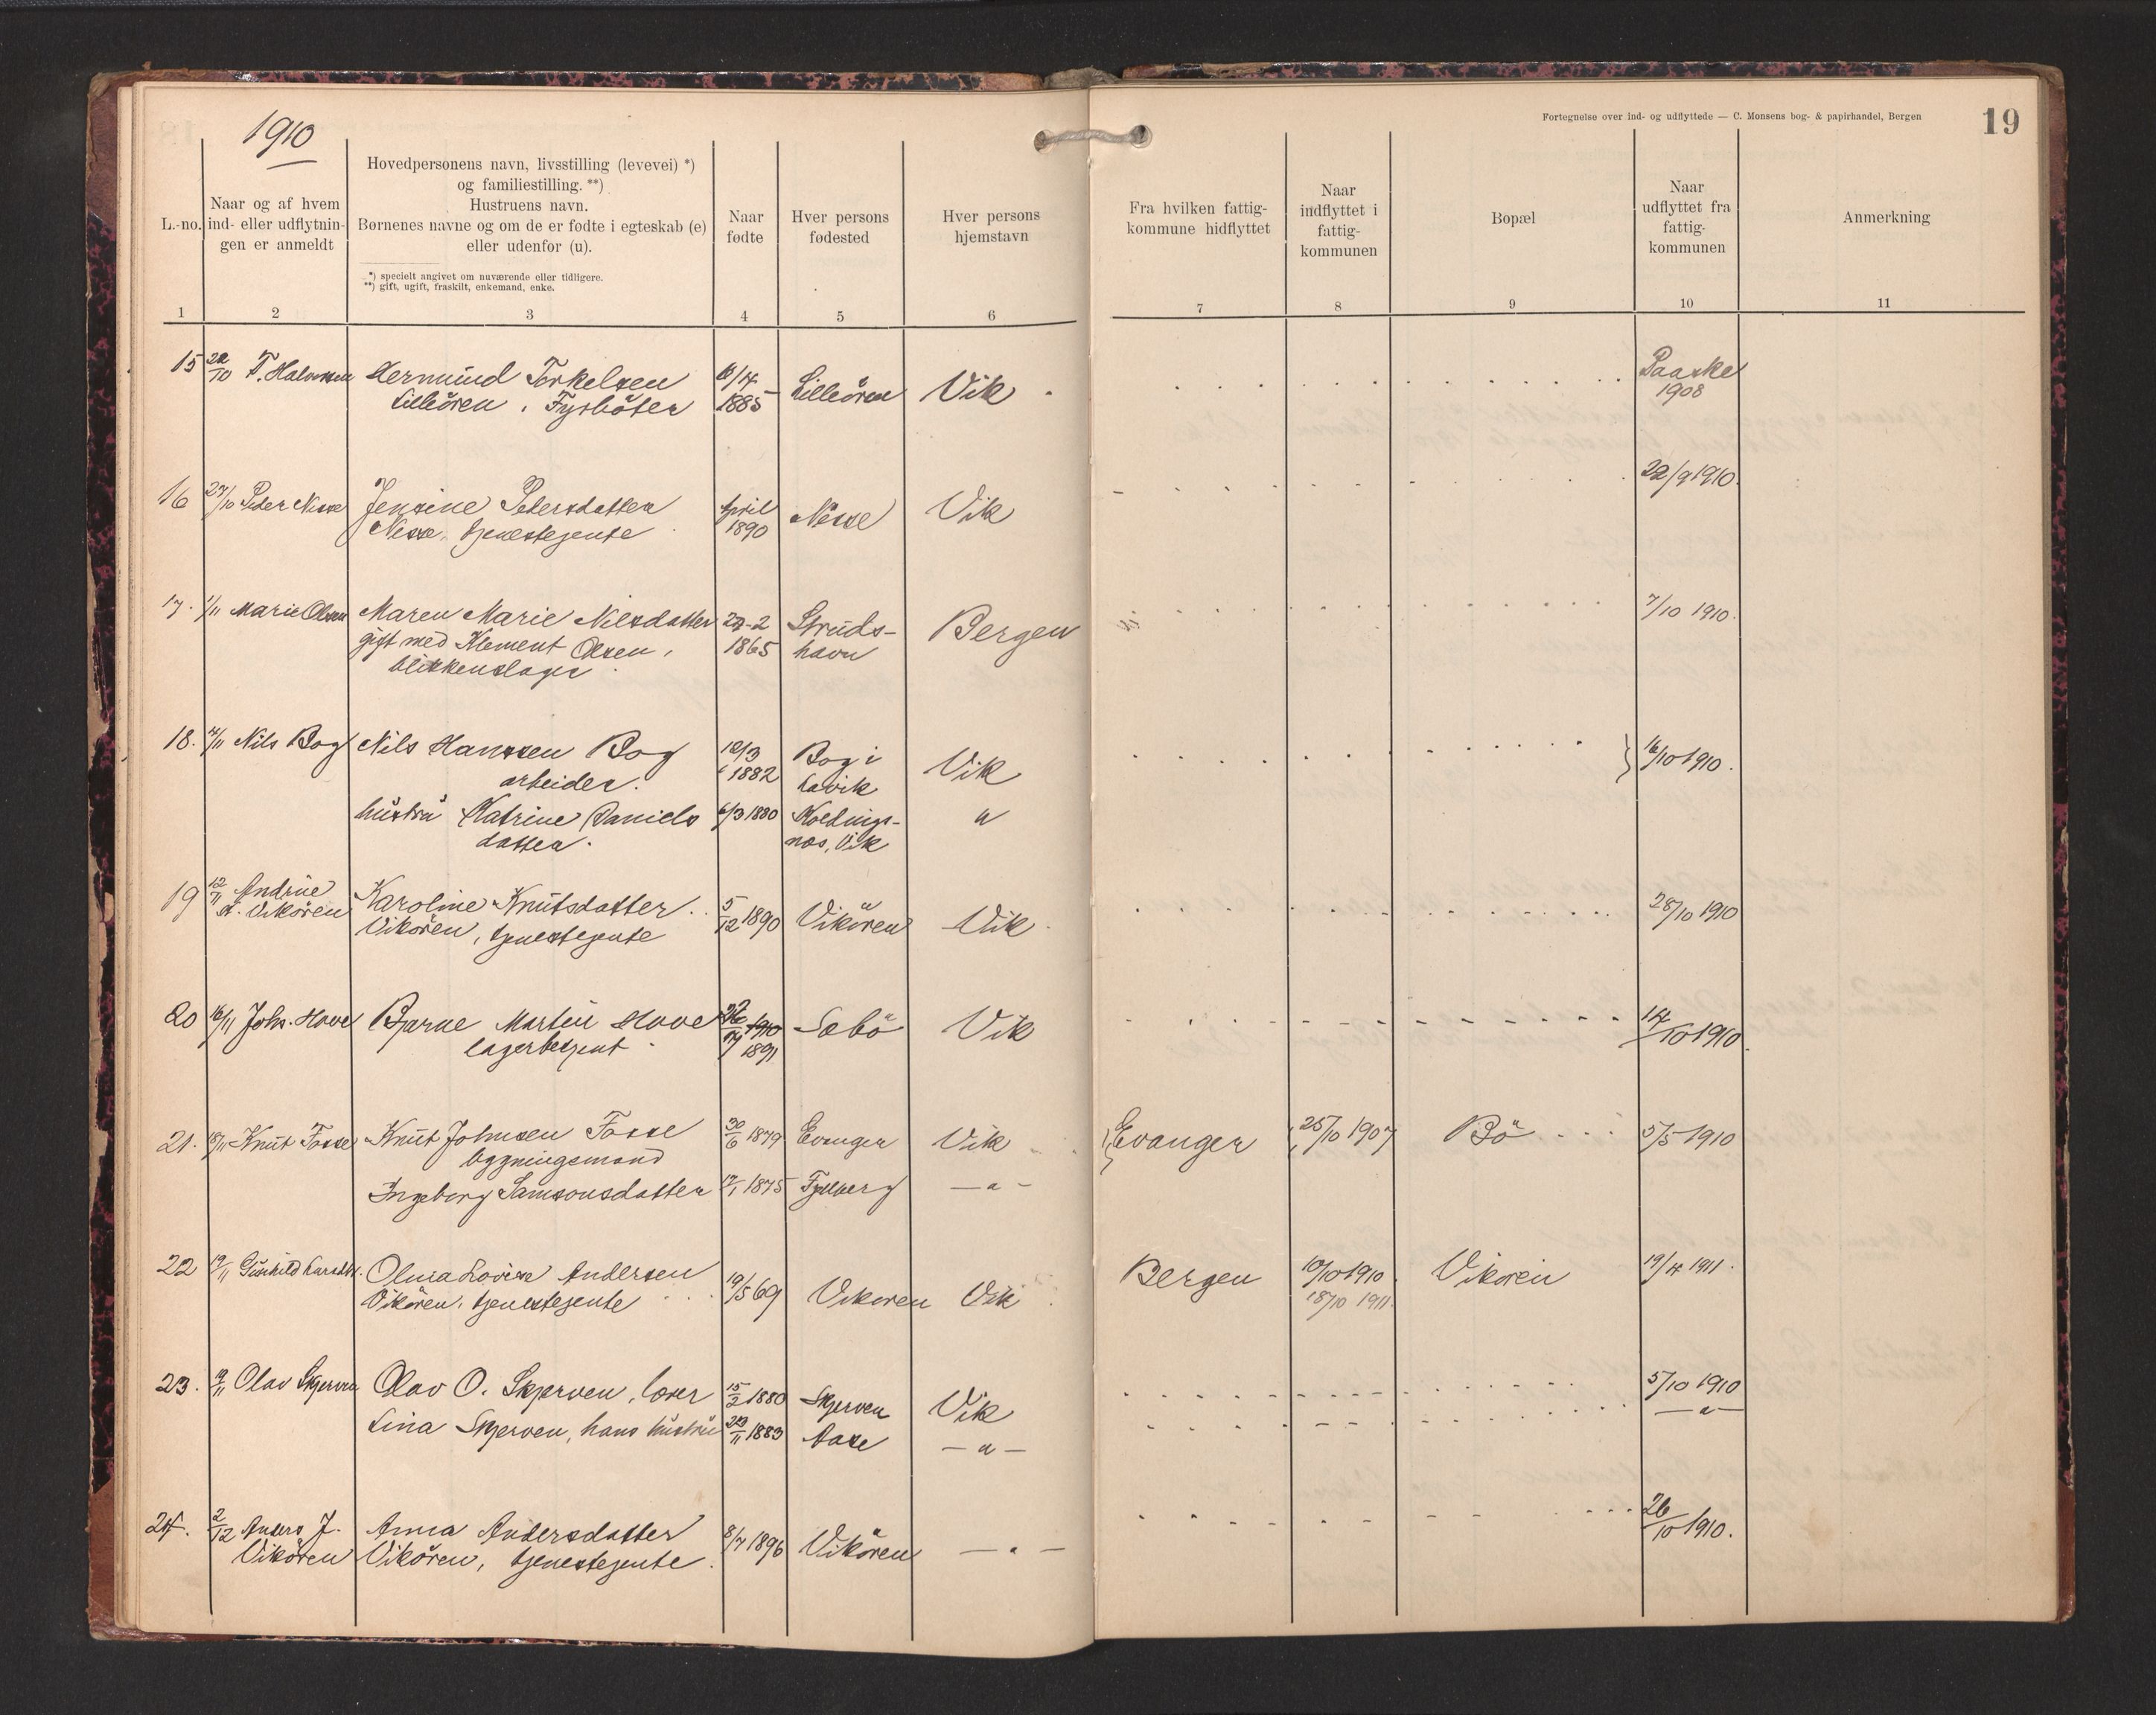 1910
Fortegnelse over ind- og udflyttede — C. Monsens bog- & papirhandel, Bergen
19
L.-no.
Naar og af hvem
ind- eller udflytnin-
gen er anmeldt
Hovedpersonens navn, livsstilling (levevei) *)
og familiestilling. **)
Hustruens navn.
Børnenes navne og om de er fødte i egteskab (e)
eller udenfor (u).
*) specielt angivet om nuværende eller tidligere.
**) gift, ugift, fraskilt, enkemand, enke.
Naar
fødte
Hver persons
fødested
Hver persons
hjemstavn
Fra hvilken fattig-
kommune hidflyttet
Naar
indflyttet i
fattig-
kommunen
Bopæl
Naar
udflyttet fra
fattig-
kommunen
Anmerkning
1 2 3 4 5 6 7 8 9 10 11
15 22/10 T. Halvorsen Hermund Torkelsen 6/4 Lilleören Vik Paaske
Lilleören, Fyrböter 1885 1908
16 27/10 Peder Nesse Jensine Petersdatter April Nesse Vik 22/9 1910.
Nesse, tjenestejente 1890
17. 1/11 Marie Olsen Maren Marie Nilsdatter 2 Struds- Bergen 7/10 1910.
gift med Klement Olsen, 1865 havn
blikkenslager
18. 4/11 Nils Bog Nils Hanssen Bog 12/3 Bog i Vik 16/10 1910.
arbeider. 1882
hustru Katrine Daniels 6/3 1880 "
datter. Vik
19 12/11 Andrine Karoline Knutsdatter 5/12 1890 Vikören Vik 28/10 1910
A. Vikören Vikören, tjenestejente
20 16/11 Johs. Hove Bjarne Martin Hove Sæbö Vik 14/10 1910.
lagerbetjent 1891
21. 18/11 Knut Fosse Knut Johnsen Fosse 30/6 1879 Evanger Vik Evanger 25/10 1907 Bö 5/5 1910
bygningsmand
Ingeborg Samsonsdatter 17/1 1875 — " —
22 19/11 Gunhild Olina Lovise Andersen 19/5 69 Vikoren Vik Bergen 10/10 1910. Vikoren 19/4 1911.
Vikören, tjenestejente 18/10 1911.
23. 19/11 Olav Skjerven Olav O. Skjerven, lærer 15/2 1880 Skjerven Vik 5/10 1910
Lina Skjerven, hans hustru 1883 Aase — " — — " —
24. 2/12 Anders J. Anna Andersdatter 8/7 1896 Vikören — " — 26/10 1910.
Vikören Vikören, tjenestejente